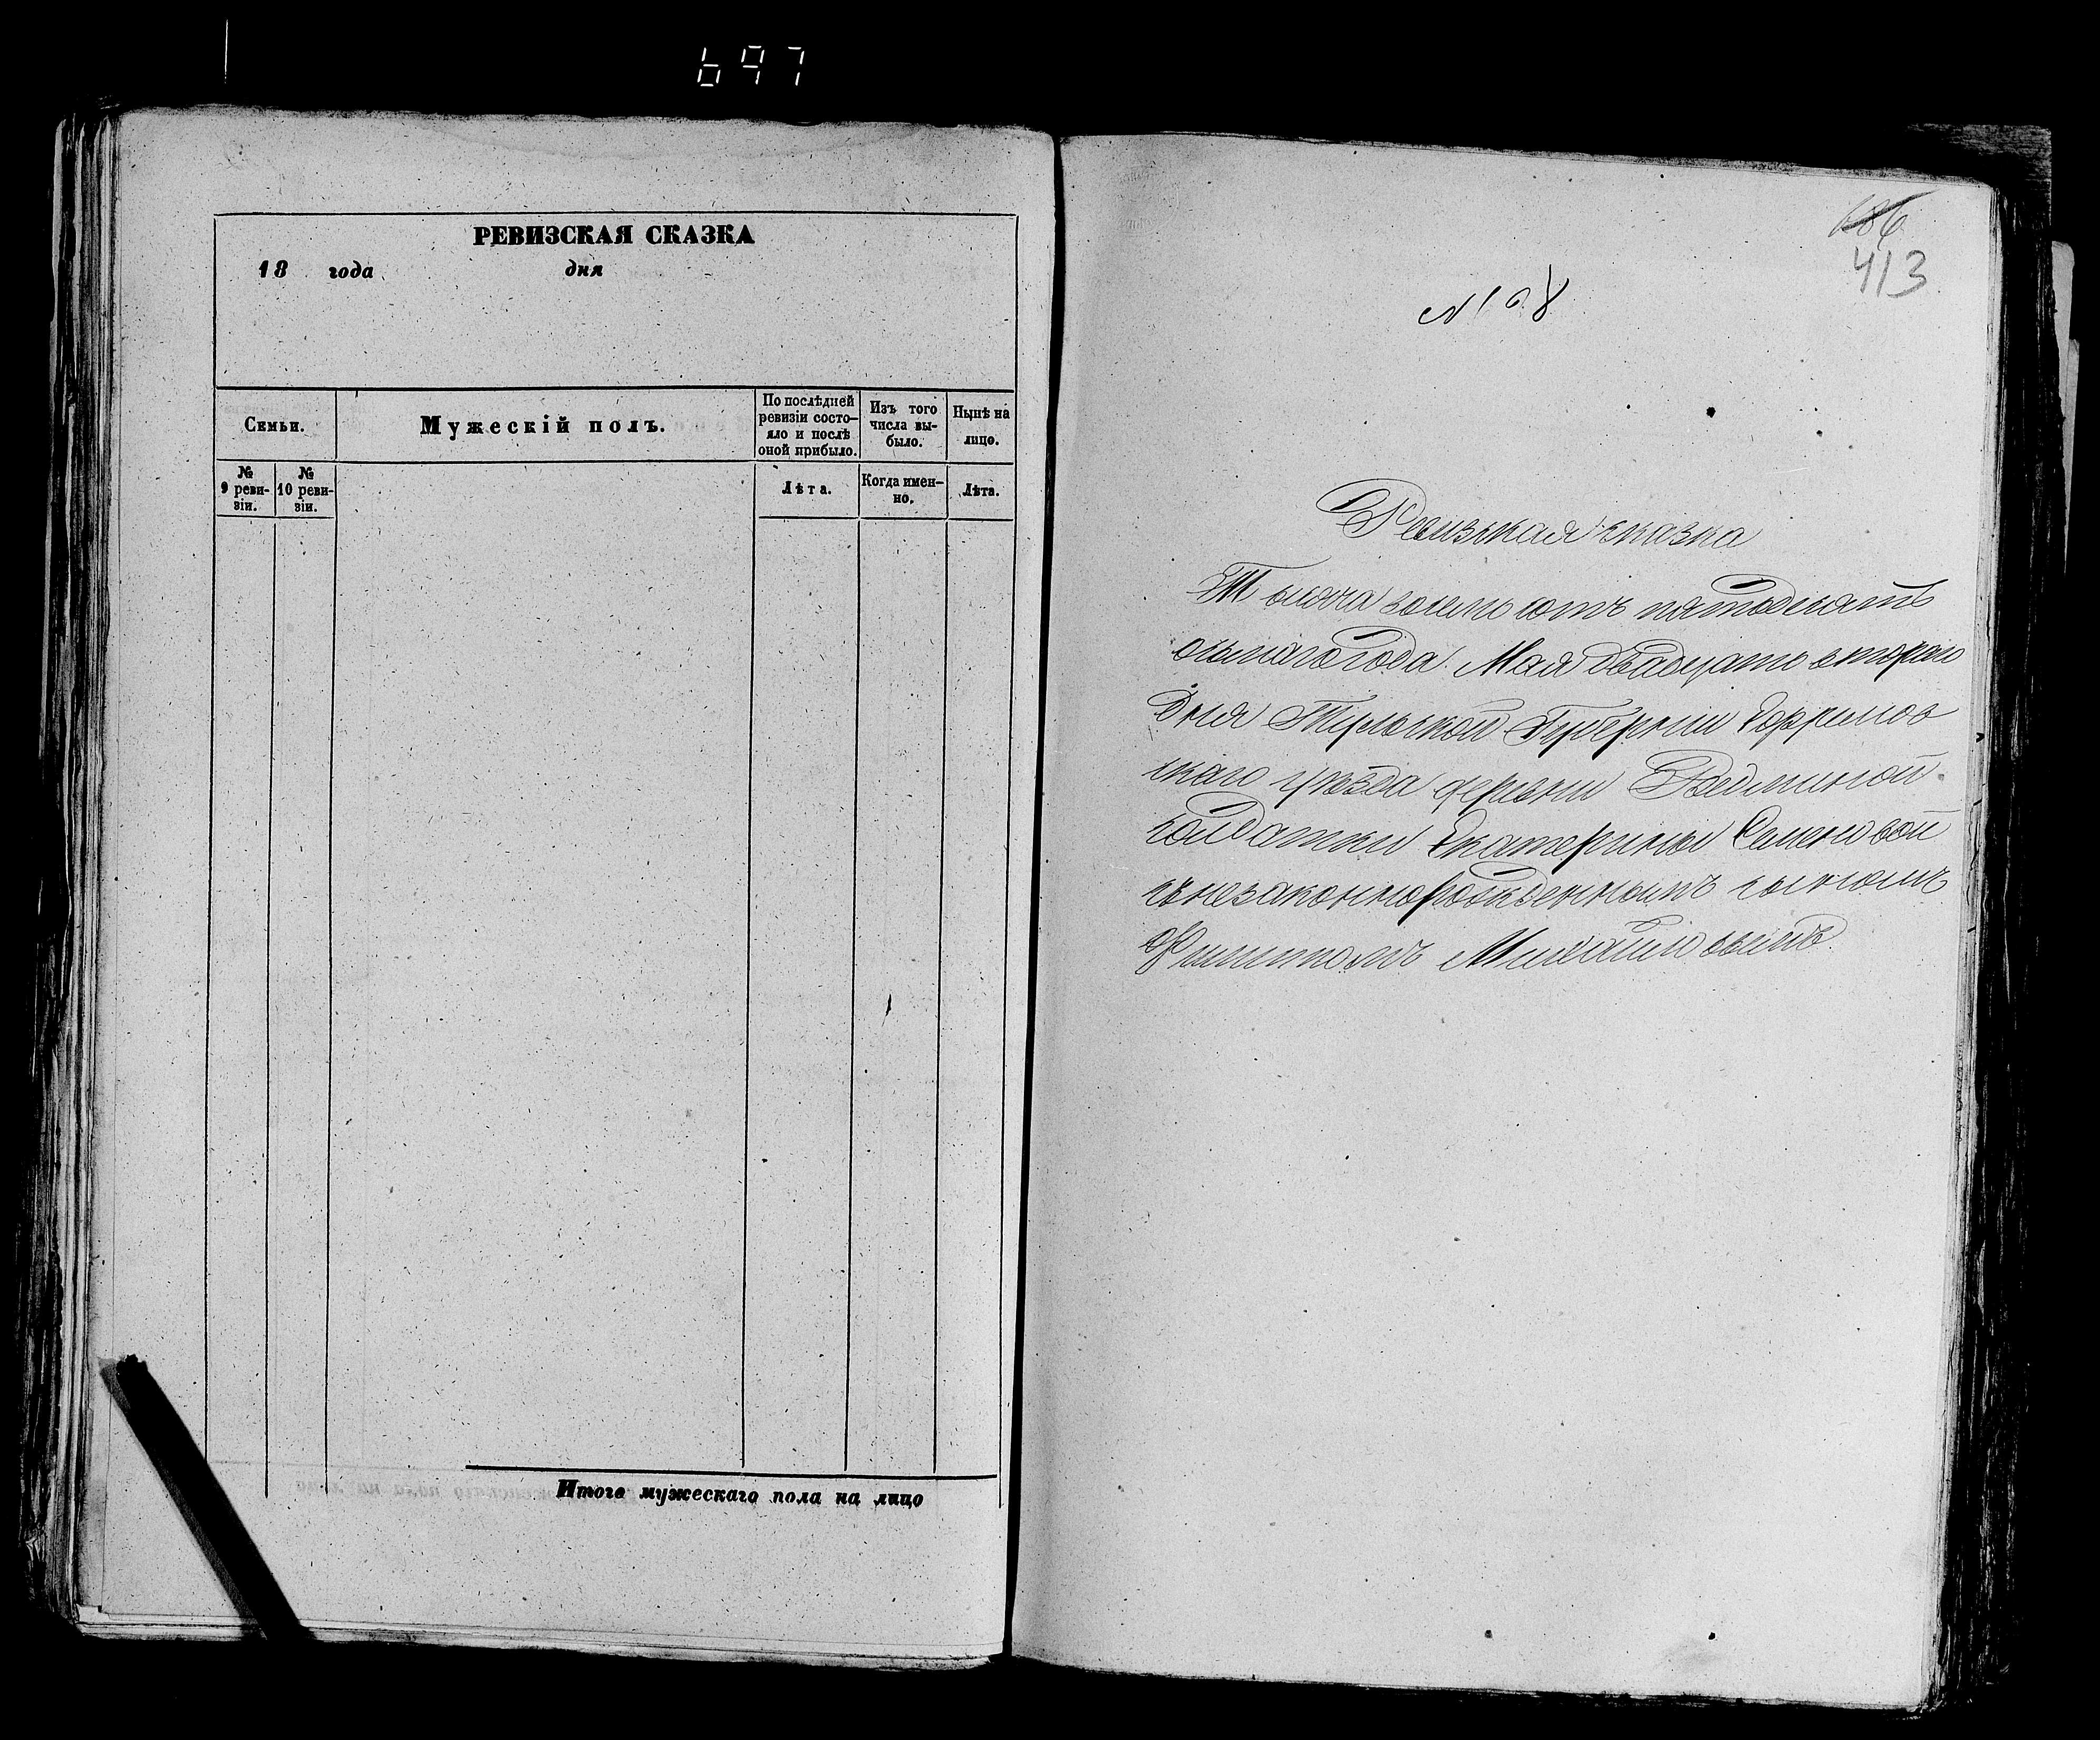 697
РЕВИЗСКАЯ СКАЗКА
18 года дня
Семьи.
Мужескій полъ.
По послѣдней
ревизіи состо-
яло и послѣ
оной прибыло.
Изъ того
числа вы-
было.
Нынѣ на
лицо.
№
9 реви-
зіи.
№
10 реви-
зіи.
Лѣта.
Когда имен-
но.
Лѣта.
Итого мужескаго пола на лицо
686
413
№ 108
Ревизская сказка
Тысяча восемь сотъ пятьдесятъ
осьмаго года Мая двадцать втораго
дня Тульской Губерніи Ефремов
скаго уѣзда деревни
солдатки Екатерины Семеновой
съ незаконнорожденнымъ сыномъ
Филипомъ Михайловымъ